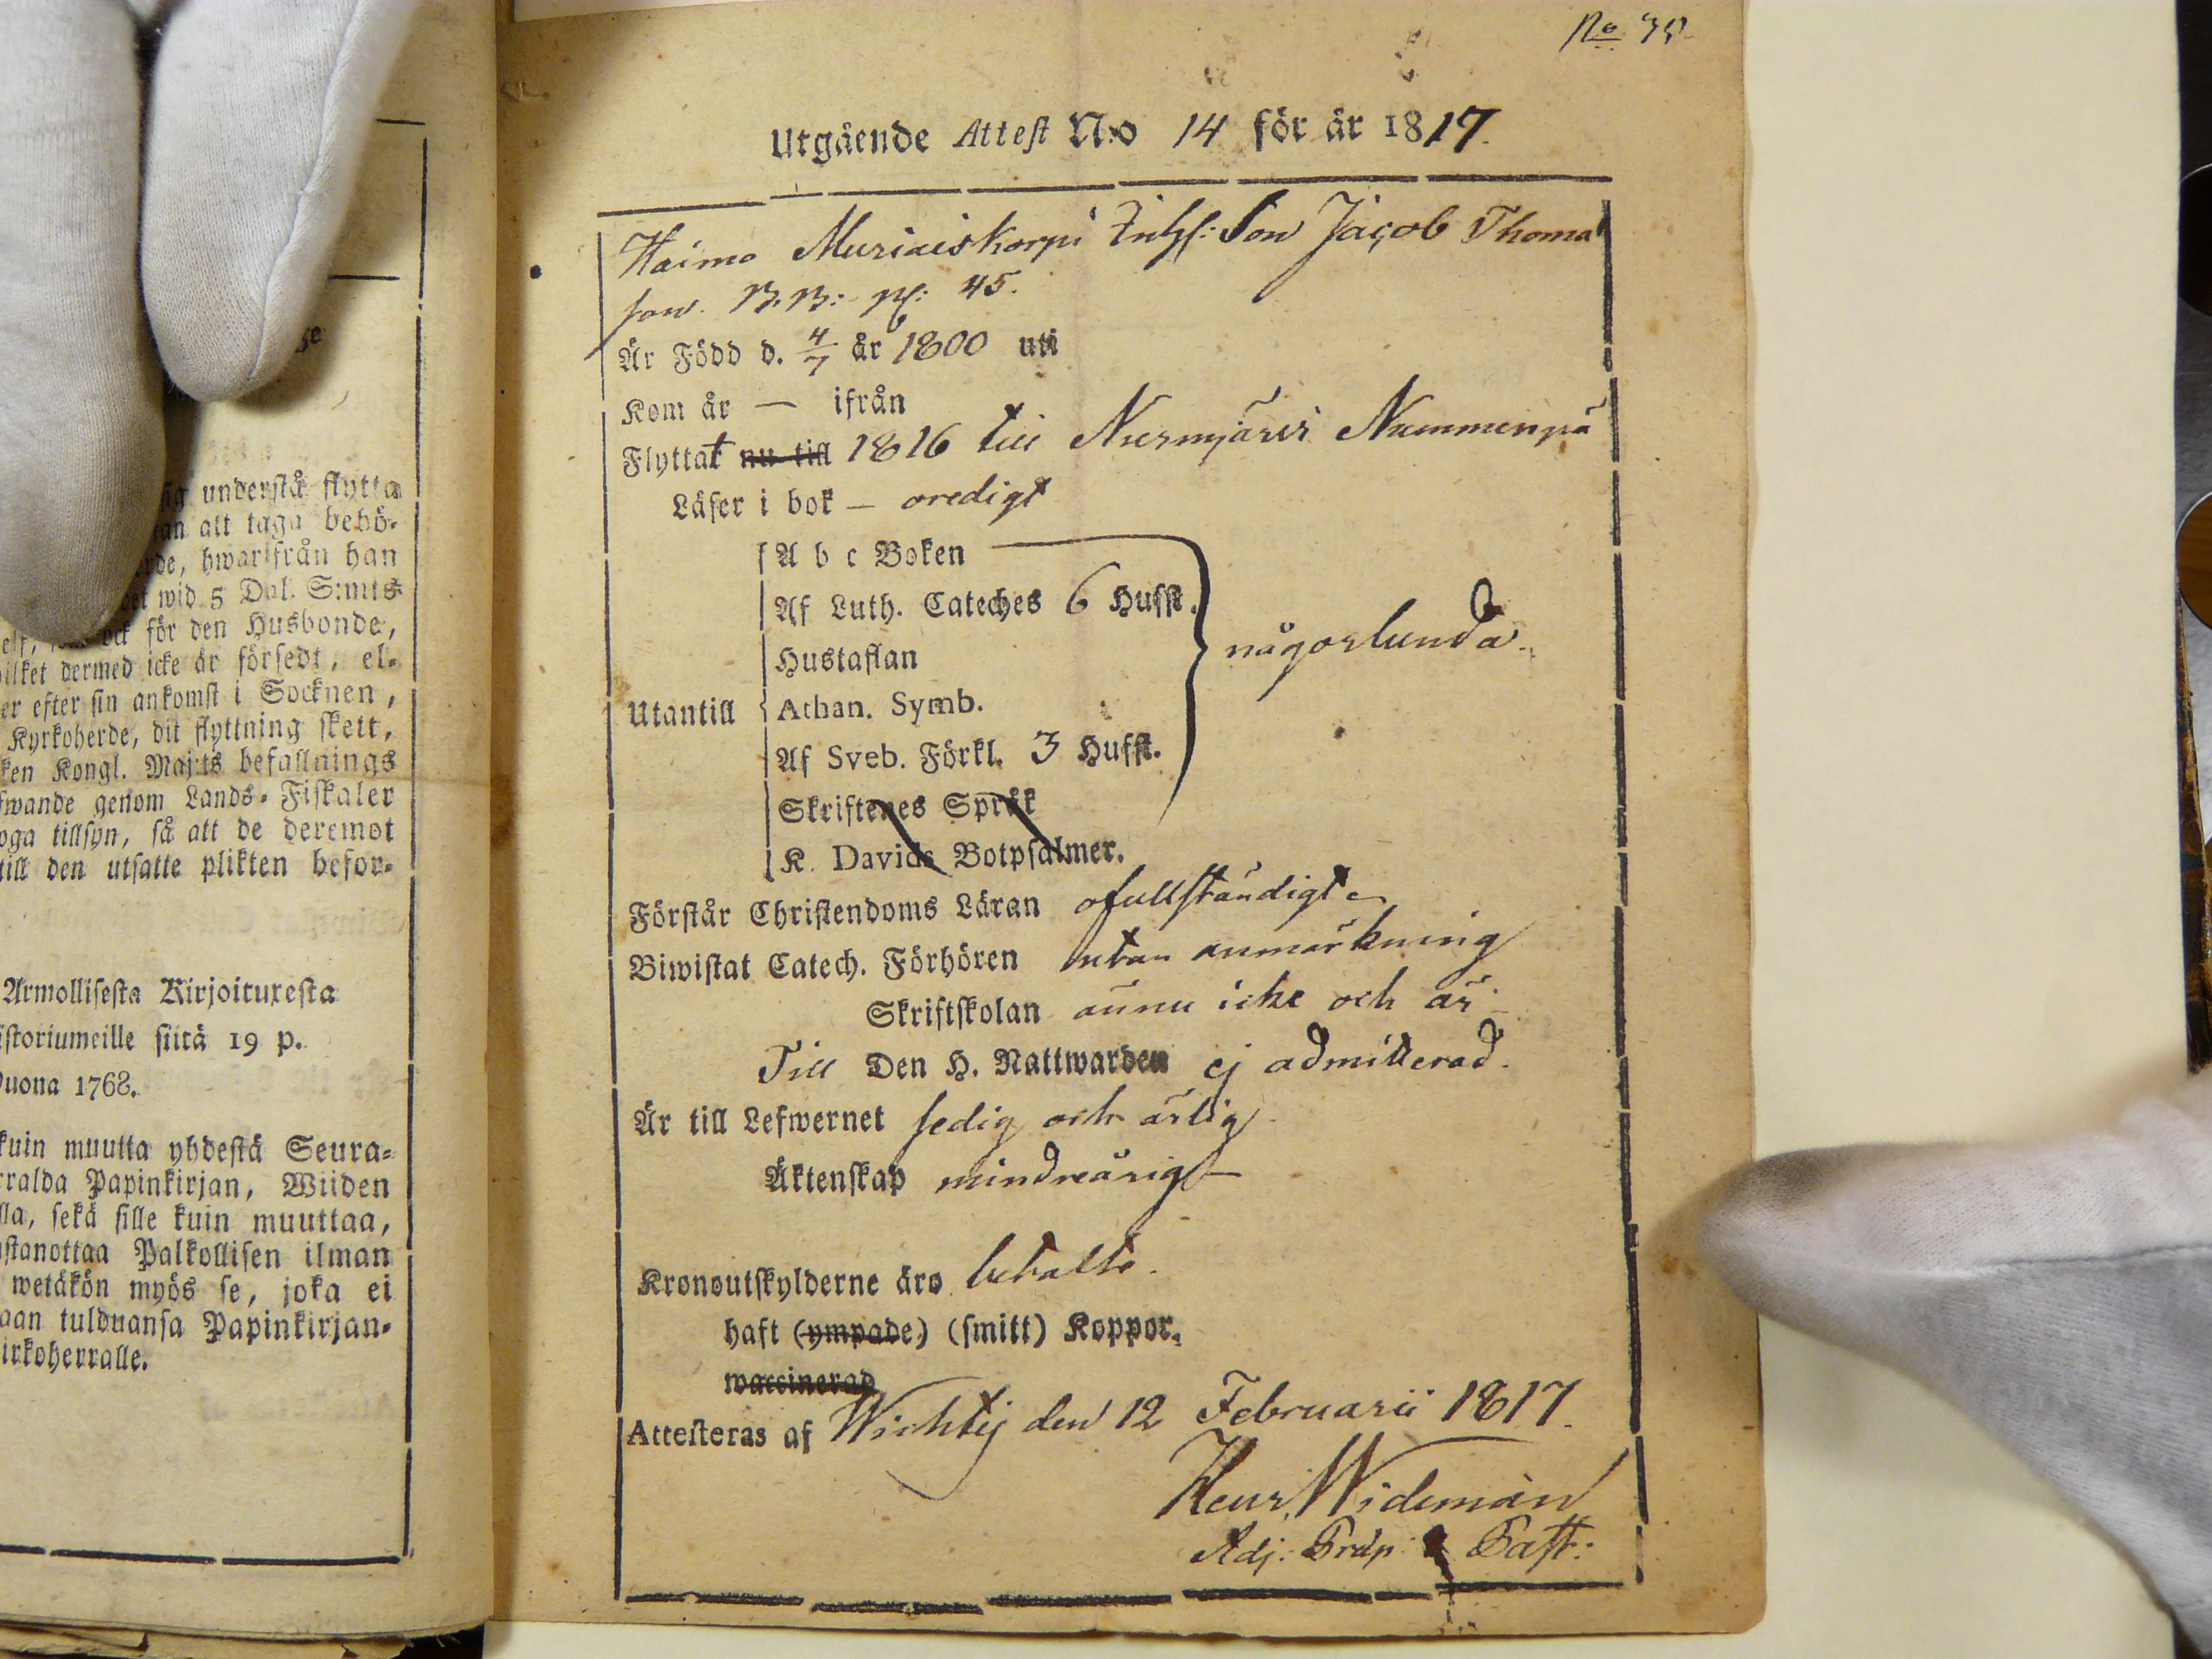 ge
sig understå flytta
tan att taga behö-
hwarifrån han
wid 5 Dal. S:mts
ock för den Husbonde,
dermed icke är försedt, el-
er efter sin ankomst i Socknen,
Kyrkoherde, dit flyttning skett,
Kongl. Maj:ts befallnings
genom Lands-Fiskaler
tillsyn, så att de deremot
till den utsatte plikten befor-
Armollisesta Kirjoituxesta
siitä 19 p.
1768.
kuin muutta yhdestä Seura-
Papinkirjan, Wiiden
sekä sille kuin muuttaa,
Palkollisen ilman
wetäkön myös se, joka ei
tulduansa Papinkirjan-
No
Utgående Attest N:o 14 för år 1817.
Haimo Muriaiskorpi Son Jacob Thomas
son. B.B: 45.
Är Född d. 4/7 år 1800 uti
Kom år — ifrån
Flyttat nu till 1816 till Nurmjärvi Nummenpä
Läser i bok — oredigt
A b c Boken
Af Luth. Cateches 6 Hufst.
Hustaflan
någorlunda.
Utantill
Athan. Symb.
Af Sveb. Förkl. 3 Hufst.
Skriftenes Språk
K. Davids Botpsalmer.
Förstår Christendoms Läran ofullständigt
Biwistat Catech. Förhören utan anmärkning
Skriftskolan ännu icke och är
Till Den H. Nattwarden ej admitterad.
Är till Lefwernet sedig och ärlig
Äktenskap mindreårig
Kronoutskylderne äro betalte.
haft (ympade) (smitt) Koppor.
waccinerad
Attesteras af Wichtis den 12 Februarii 1817.
Henr. Wideman
Adj: Præp: Past: